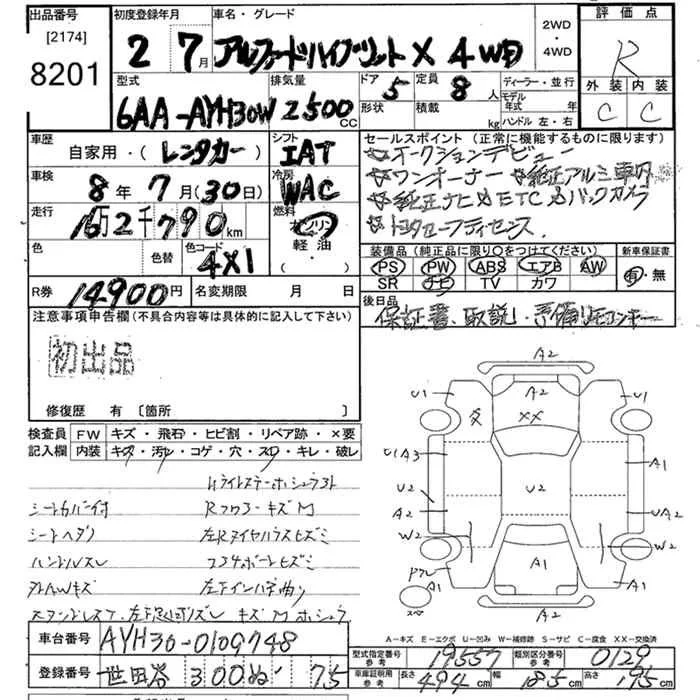 出品番号
[2174]
8201
初度登録年月
2 7月
車名・グレード
アルファードハイブリット X 4WD
2WD
・
4WD
評価点
R
外装 内装
C C
型式
6AA-AYH30W
排気量
2500cc
ドア
5
定員
8人
形状
積載
kg
ディーラー・並行
モデル年式 年
ハンドル 左・右
車歴
自家用・(レンタカー)
シフト
IAT
車検
8年7月(30日)
冷房
WAC
走行
16万2千790km
燃料
ガソリン
軽油
( ・ )
色
色替
色コード
4X1
R券
14900円
名変期限 月 日
セールスポイント(正常に機能するものに限ります)
☆オークションデビュー
☆ワンオーナー ☆純正アルミ車内
☆純正ナビ☆ETC☆バックカメラ
☆トヨタセーフティセンス.
装備品(純正品に限り○をつけてください)
PS PW ABS エアB AW
SR ナビ TV カワ
新車保証書
有・無
後日品
保証書、取説、予備リモコンキー
注意事項申告欄(不具合内容等は具体的に記入して下さい)
初出品
修復歴 有 [箇所 ]
検査員記入欄
FW キズ・飛石・ヒビ割・リペア跡・×要
内装 キズ・汚レ・コゲ・穴・スレ・キレ・破レ
シートカバー付
RフロアーキズM
シートヘタリ
ハンドルスレ
アルAWキズ
車台番号
AYH30-0109748
登録番号
世田谷 300 ぬ 75
A2
A2
U1
X
XX
U1
U1A3
A1
U2
U2
A2
UA2
W2
W2
A1
A1
A1
スペ
A-キズ E-エクボ U-凹み W-補修跡 S-サビ C-腐食 XX-交換済
型式指定番号 参考
19557
類別区分番号 参考
0129
車庫証明用 参考
長さ 494cm
幅 185cm
高さ 195cm